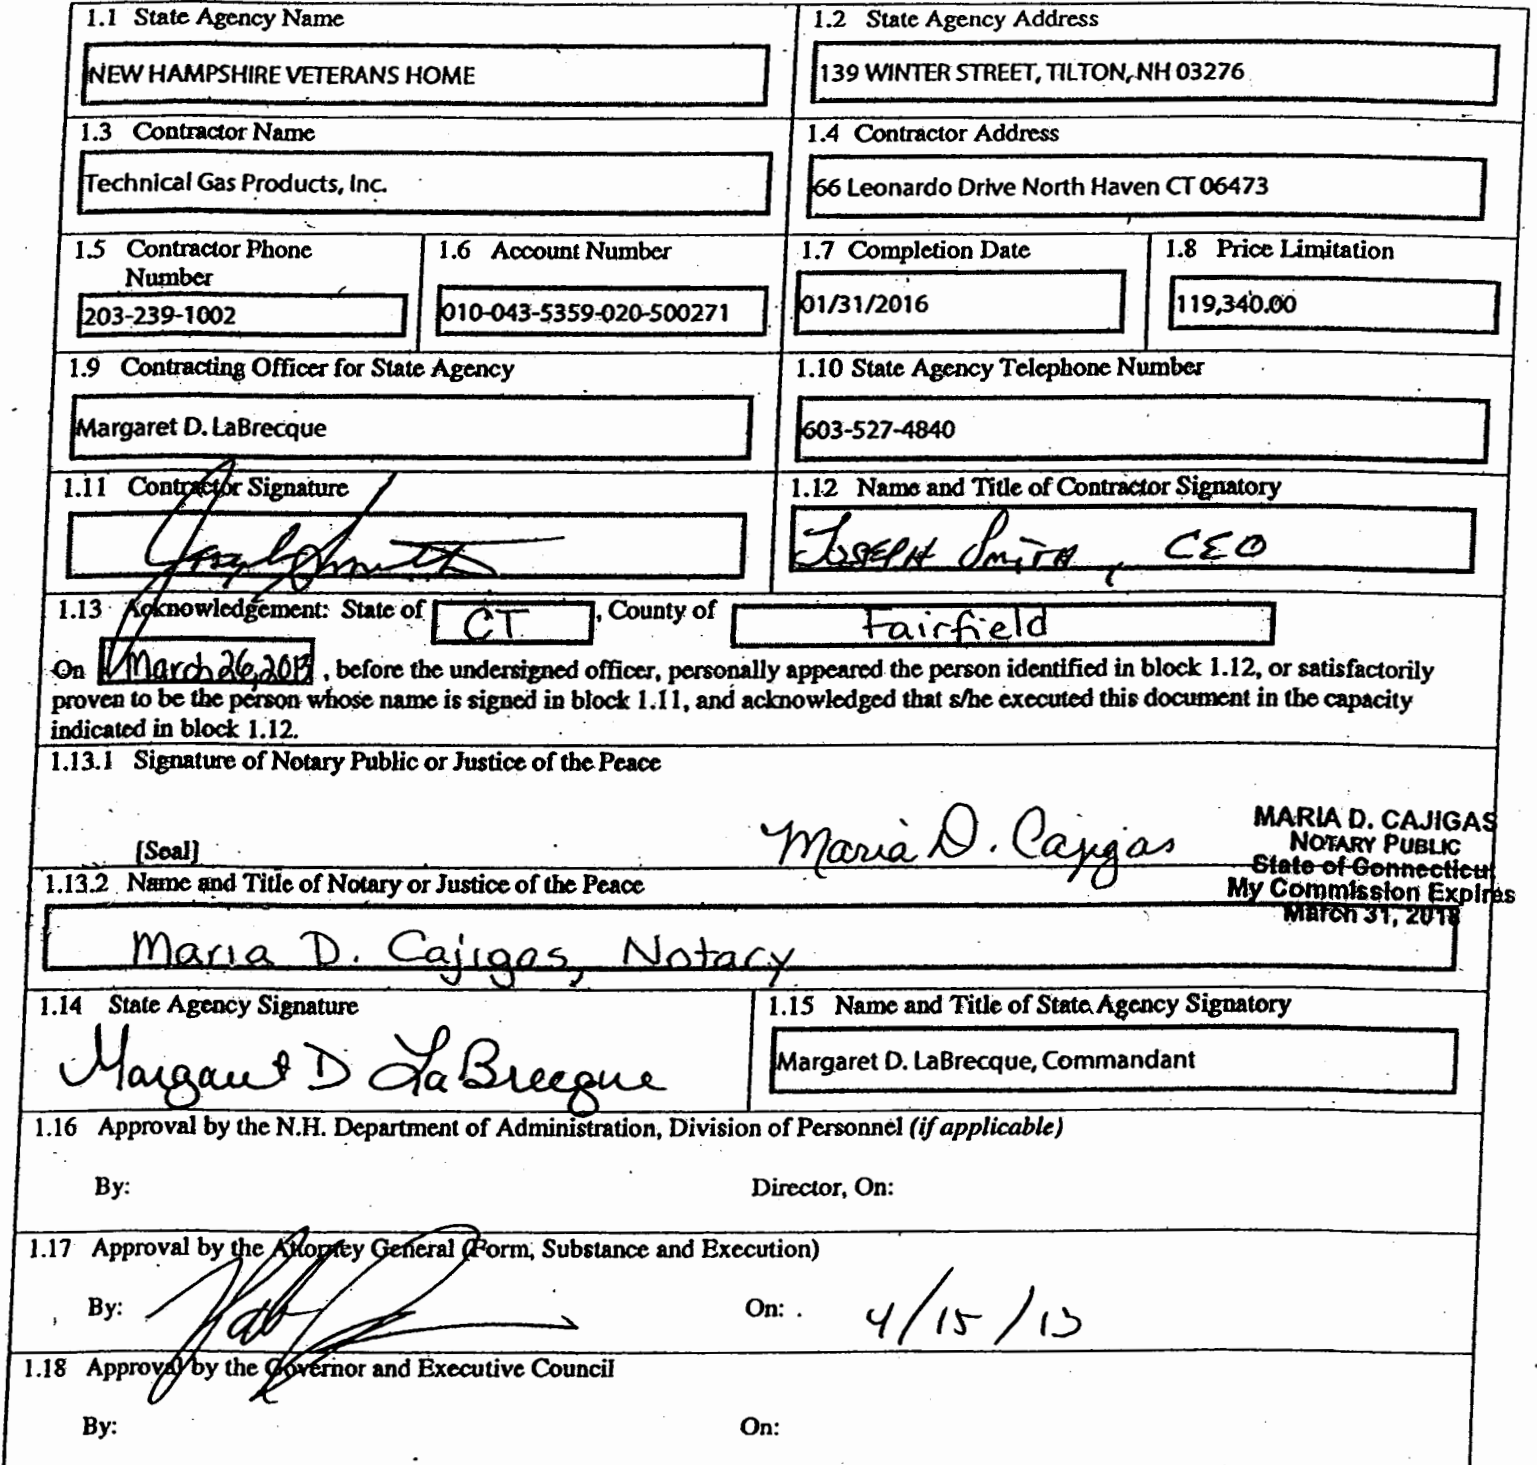 1.1 State Agency Name
NEW HAMPSHIRE VETERANS HOME
1.2 State Agency Address
139 WINTER STREET, TILTON, NH 03276
1.3 Contractor Name
Technical Gas Products, Inc.
1.4 Contractor Address
66 Leonardo Drive North Haven CT 06473
1.5 Contractor Phone
Number
203-239-1002
1.6 Account Number
010-043-5359-020-500271
1.7 Completion Date
01/31/2016
1.8 Price Limitation
119,340.00
1.9 Contracting Officer for State Agency
Margaret D. LaBrecque
1.10 State Agency Telephone Number
603-527-4840
1.11 Contractor Signature
Joseph Smith
1.12 Name and Title of Contractor Signatory
JOSEPH SMITH, CEO
1.13 Acknowledgement: State of CT, County of Fairfield
On March 26, 2013, before the undersigned officer, personally appeared the person identified in block 1.12, or satisfactorily
proven to be the person whose name is signed in block 1.11, and acknowledged that s/he executed this document in the capacity
indicated in block 1.12.
1.13.1 Signature of Notary Public or Justice of the Peace
[Seal]
Maria D. Cajigas
MARIA D. CAJIGAS
NOTARY PUBLIC
State of Connecticut
My Commission Expires
March 31, 2018
1.13.2 Name and Title of Notary or Justice of the Peace
Maria D. Cajigas, Notary
1.14 State Agency Signature
Margaret D LaBrecque
1.15 Name and Title of State Agency Signatory
Margaret D. LaBrecque, Commandant
1.16 Approval by the N.H. Department of Administration, Division of Personnel (if applicable)
By:
Director, On:
1.17 Approval by the Attorney General (Form, Substance and Execution)
By:
On: 4/15/13
1.18 Approval by the Governor and Executive Council
By:
On: